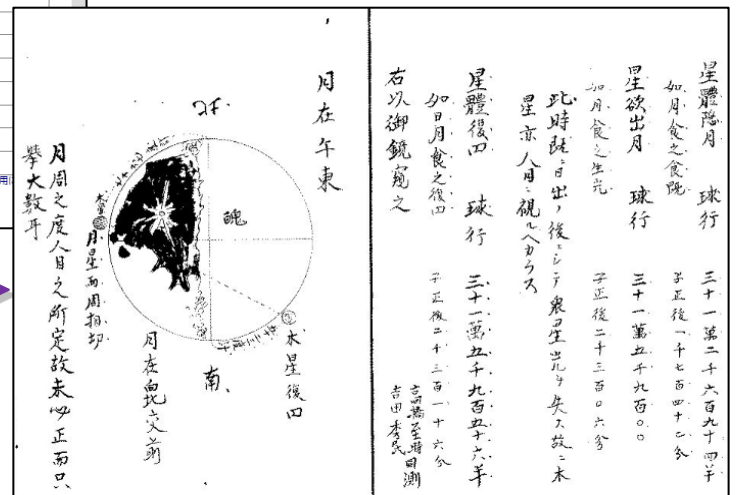 星體隠月 球行 三十一萬二千六百九十四半
如月食之食既 子正後一千七百四十二分
星欲出月 球行 三十一萬五千九百〇〇
如月食之生光 子正後二千三百〇六分
此時既ニ日出ノ後ニシテ衆星光ヲ失フ故ニ木
星亦人目ニ視ルヘカラス
星體復円 球行 三十一萬五千九百五十六半
如日月食之復円 子正後二千三百一十六分
右以御鏡窺之
高橋至時同測
吉田秀民
月在午東
北
魄
南
木星復円
木星
月星両周相切
月在
月周之度人目之所定故未必正而只
挙大数耳